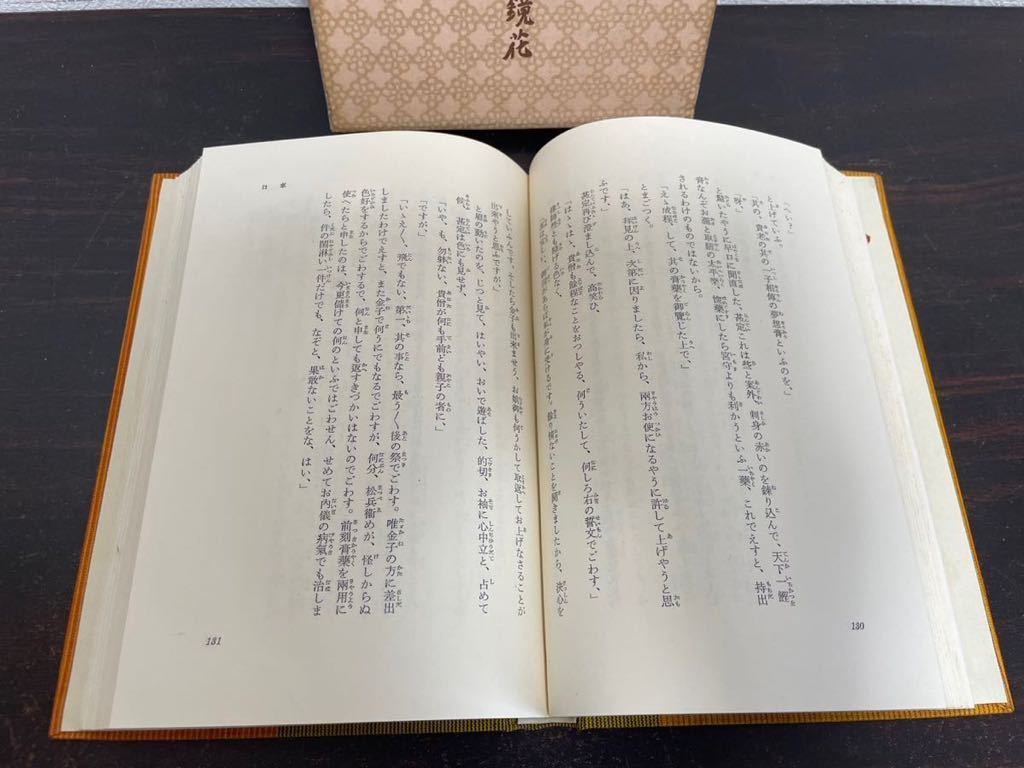 鏡花
「へい？」
と上げていふ。
「其の、貴家の其の一子相傳の夢想膏といふのを、」
「呀。」
と驚いたやうに早口に聞直した、甚定これは些と案外、刺身の赤いのを練り込んで、天下一鰹
膏なんぞお溜と取組の太平樂、惚藥にしたら宮守よりも利かうといふ一藥、これでえすと、持出
されるわけのものではないから。
「えゝ成程、して、其の膏藥を御覽じた上で、」
とまごつく。
「はあ、拜見の上、次第に因りましたら、私から、兩方お使になるやうに許して上げやうと思
ふです。」
甚定再び澄まし込んで、高笑ひ、
「はゝはゝ、貴僧も餘程なことをおつしやる、何ういたして、何しろ右の誓文でごわす、」
出來やうと思ふですが。」
と眉の動いたのを、じつと見て、はいやい、おいで遊ばした、的切、お袖に心中立と、占めて
候、甚定は色にも見せず、
「いや、も、勿躰ない、貴僧が何も手前ども親子の者に、」
「ですが、」
「いゝえ〳〵、飛でもない、第一、其の事なら、最う〳〵後の祭でごわす。唯金子の方に差出
しましたわけでえすと、また金子で何うにでもなるでごわすが、何分、松兵衞めが、怪しからぬ
色好をするからでごわするで、何と申しても返すきづかひはないのでごわす。前刻膏藥を兩用に
使へたらと申したのは、今更儲けての何のといふではごわせん、せめてお內儀の病氣でも治しま
したら、件の闇淋い一件だけでも、なぞと、果敢ないことをな、はい、」
130
131